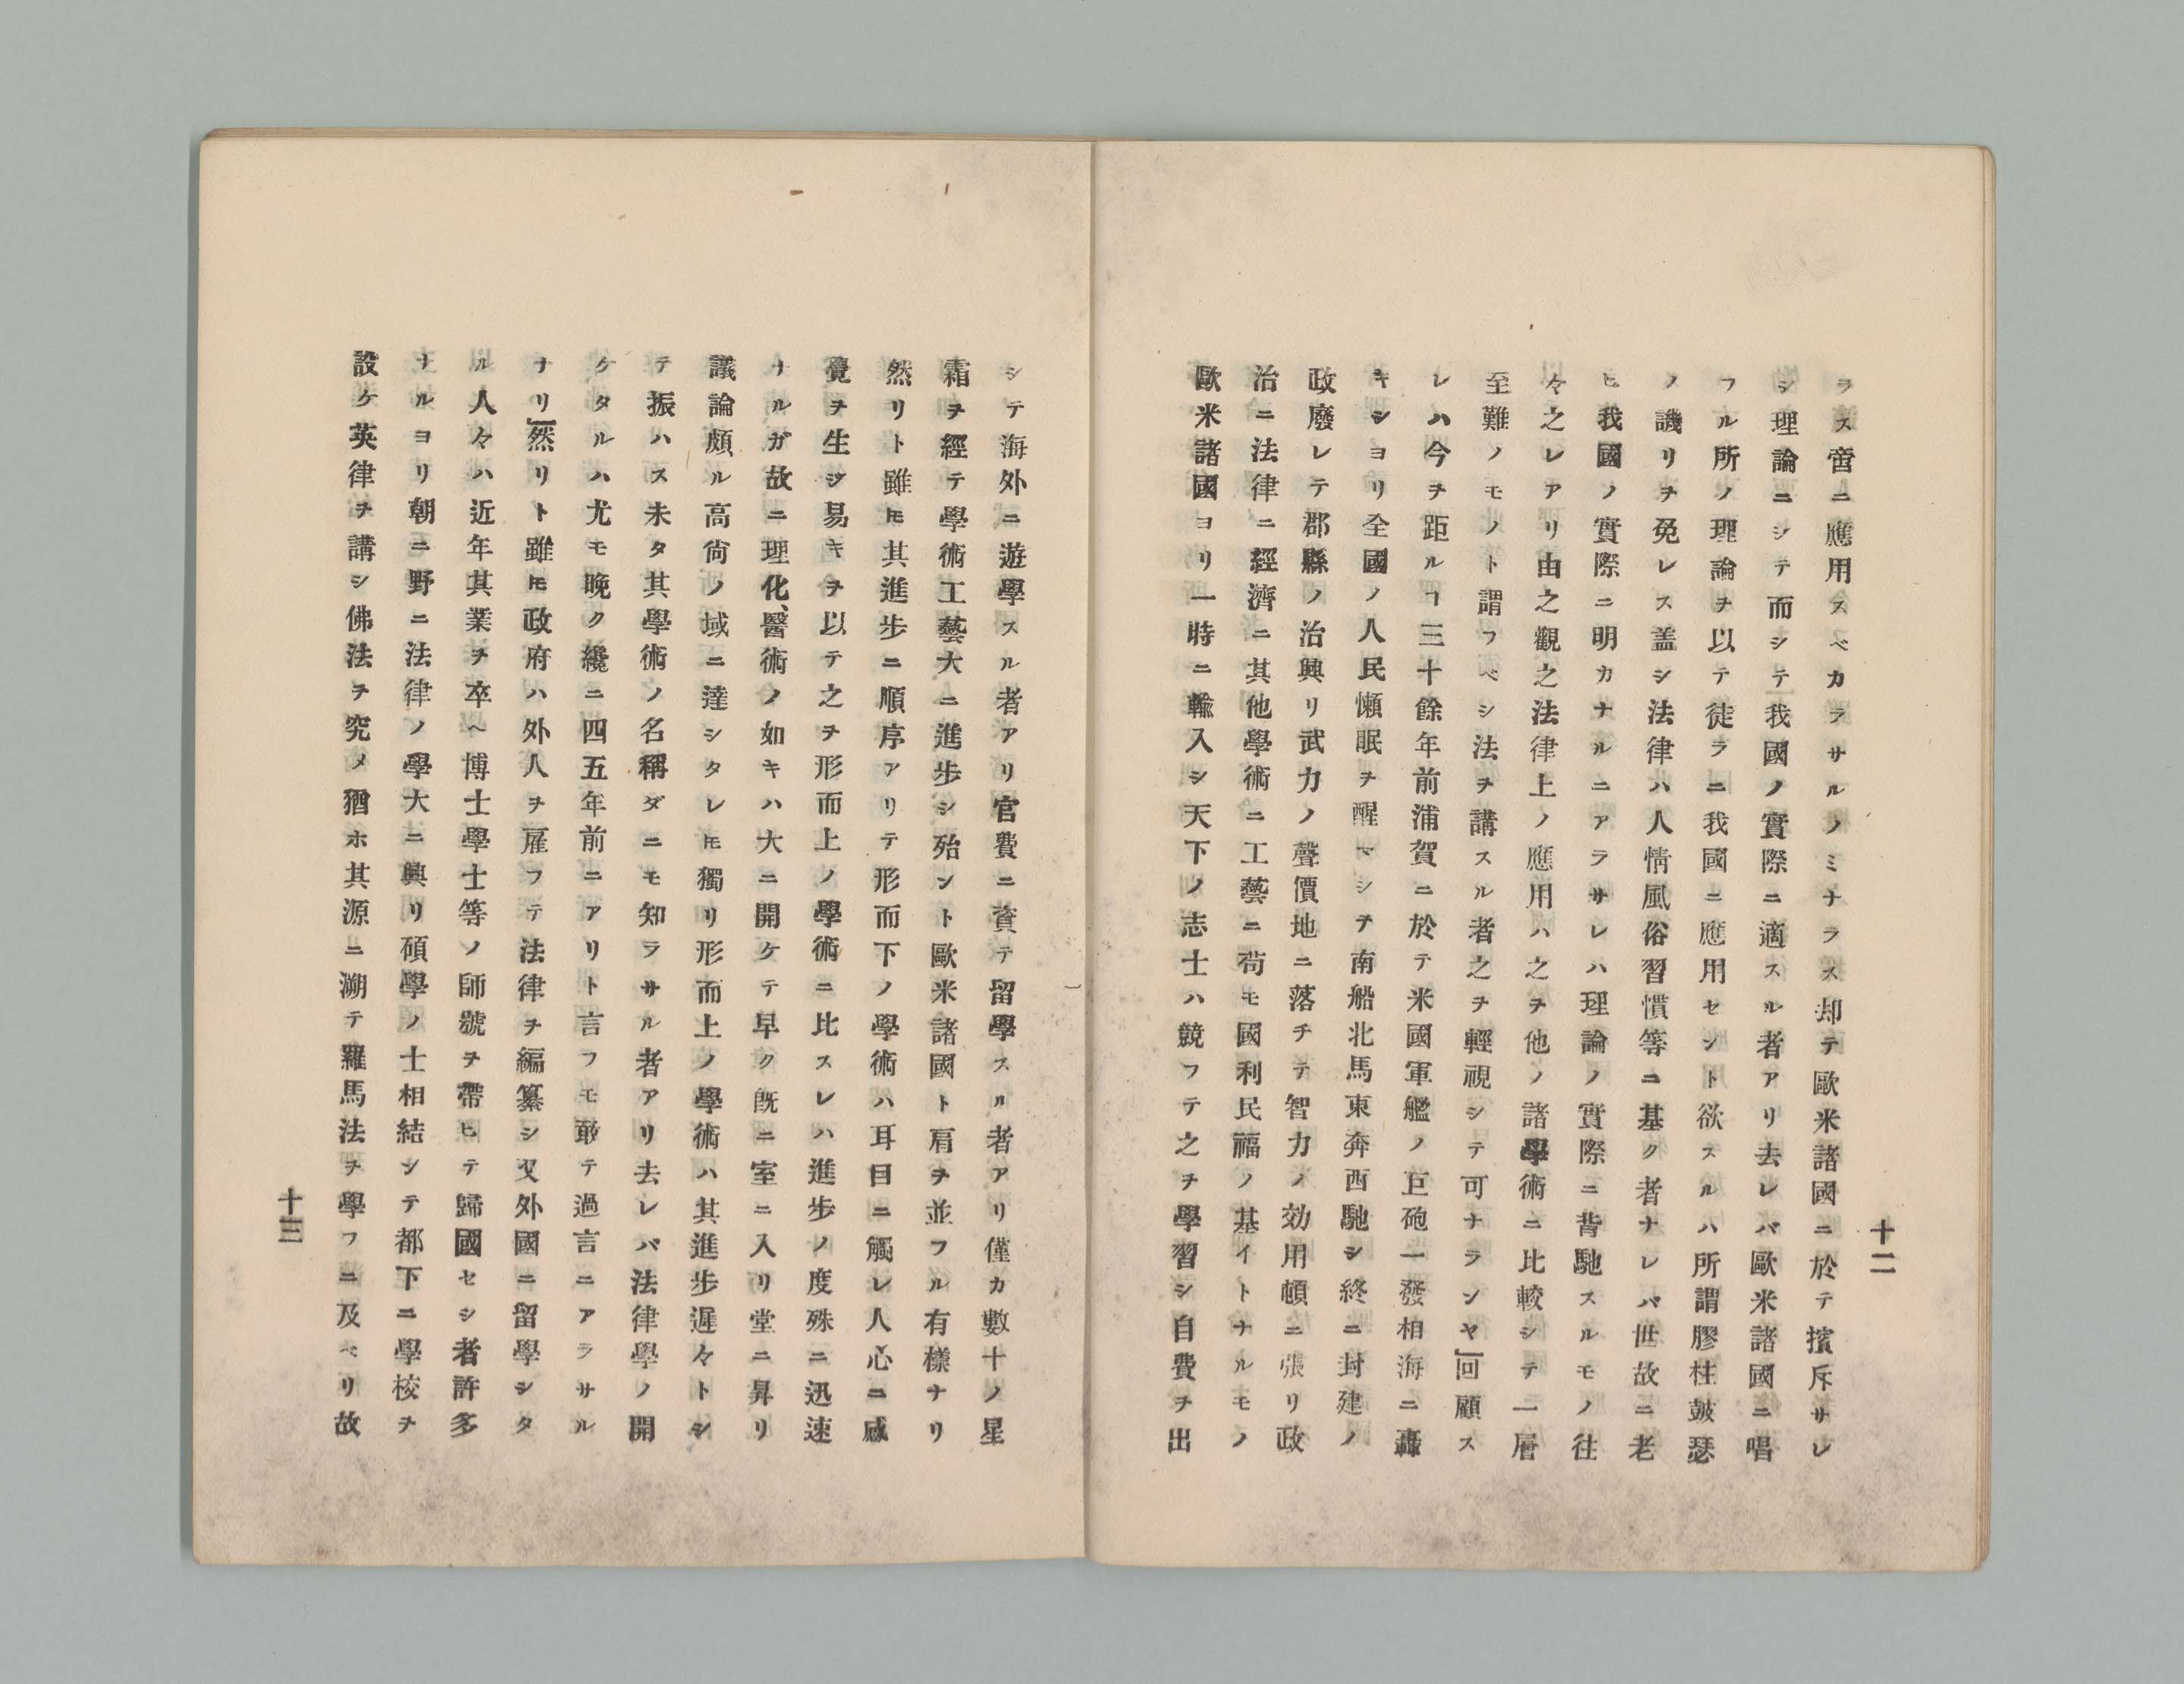 十二
ラス啻ニ應用スベカラサルノミナラス却テ歐米諸國ニ於テ擯斥サレ
シ理論ニシテ而シテ我國ノ實際ニ適スル者アリ去レバ歐米諸國ニ唱
フル所ノ理論ヲ以テ徒ラニ我國ニ應用セシト欲スルハ所謂膠柱皷瑟
ノ譏リヲ免レス盖シ法律ハ人情風俗習慣等ニ基ク者ナレバ世故ニ老
ヒ我國ノ實際ニ明カナルニアラサレハ理論ノ實際ニ背馳スルモノ往
々之レアリ由之觀之法律上ノ應用ハ之ヲ他ノ諸學術ニ比較シテ一層
至難ノモノト謂フベシ法ヲ講スル者之ヲ輕視シテ可ナランヤ」回顧ス
レハ今ヲ距ルヿ三十餘年前浦賀ニ於テ米國軍艦ノ巨砲一發相海ニ轟
キシヨリ全國ノ人民懶眠ヲ醒マシヲ南船北馬東奔西馳シ終ニ封建ノ
政廢レテ郡縣ノ治興リ武力ノ聲價地ニ落チテ智力ノ効用頓ニ張リ政
治ニ法律ニ經濟ニ其他學術ニ工藝ニ苟モ國利民福ノ基イトナルモノ
歐米諸國ヨリ一時ニ輸入シ天下ノ志士ハ競フテ之ヲ學習シ自費ヲ出
シテ海外ニ遊學スル者アリ官費ニ資テ留學スル者アリ僅カ數十ノ星
霜ヲ經テ學術工藝大ニ進步シ殆ント歐米諸國ト肩ヲ並フル有樣ナリ
然リト雖𪜈其進步ニ順序アリテ形而下ノ學術ハ耳目ニ觸レ人心ニ感
覺ヲ生シ易キヲ以テ之ヲ形而上ノ學術ニ比スレハ進步ノ度殊ニ迅速
ナルガ故ニ理化、醫術ノ如キハ大ニ開ケテ早ク既ニ室ニ入リ堂ニ昇リ
議論頗ル高尙ノ域ニ達シタレ𪜈獨リ形而上ノ學術ハ其進步遲々トシ
テ振ハス未タ其學術ノ名稱ダニモ知ラサル者アリ去レバ法律學ノ開
ケタルハ尤モ晩ク纔ニ四五年前ニアリト言フモ敢テ過言ニアラサル
ナリ」然リト雖𪜈政府ハ外人ヲ雇フテ法律ヲ編纂シ又外國ニ留學シタ
ル人々ハ近年其業ヲ卒ヘ博士學士等ノ師號ヲ帶ヒテ歸國セシ者許多
ナルヨリ朝ニ野ニ法律ノ學大ニ興リ碩學ノ士相結シテ都下ニ學校ヲ
設ケ英律ヲ講シ佛法ヲ究メ猶ホ其源ニ溯テ羅馬法ヲ學フニ及ベリ故
十三